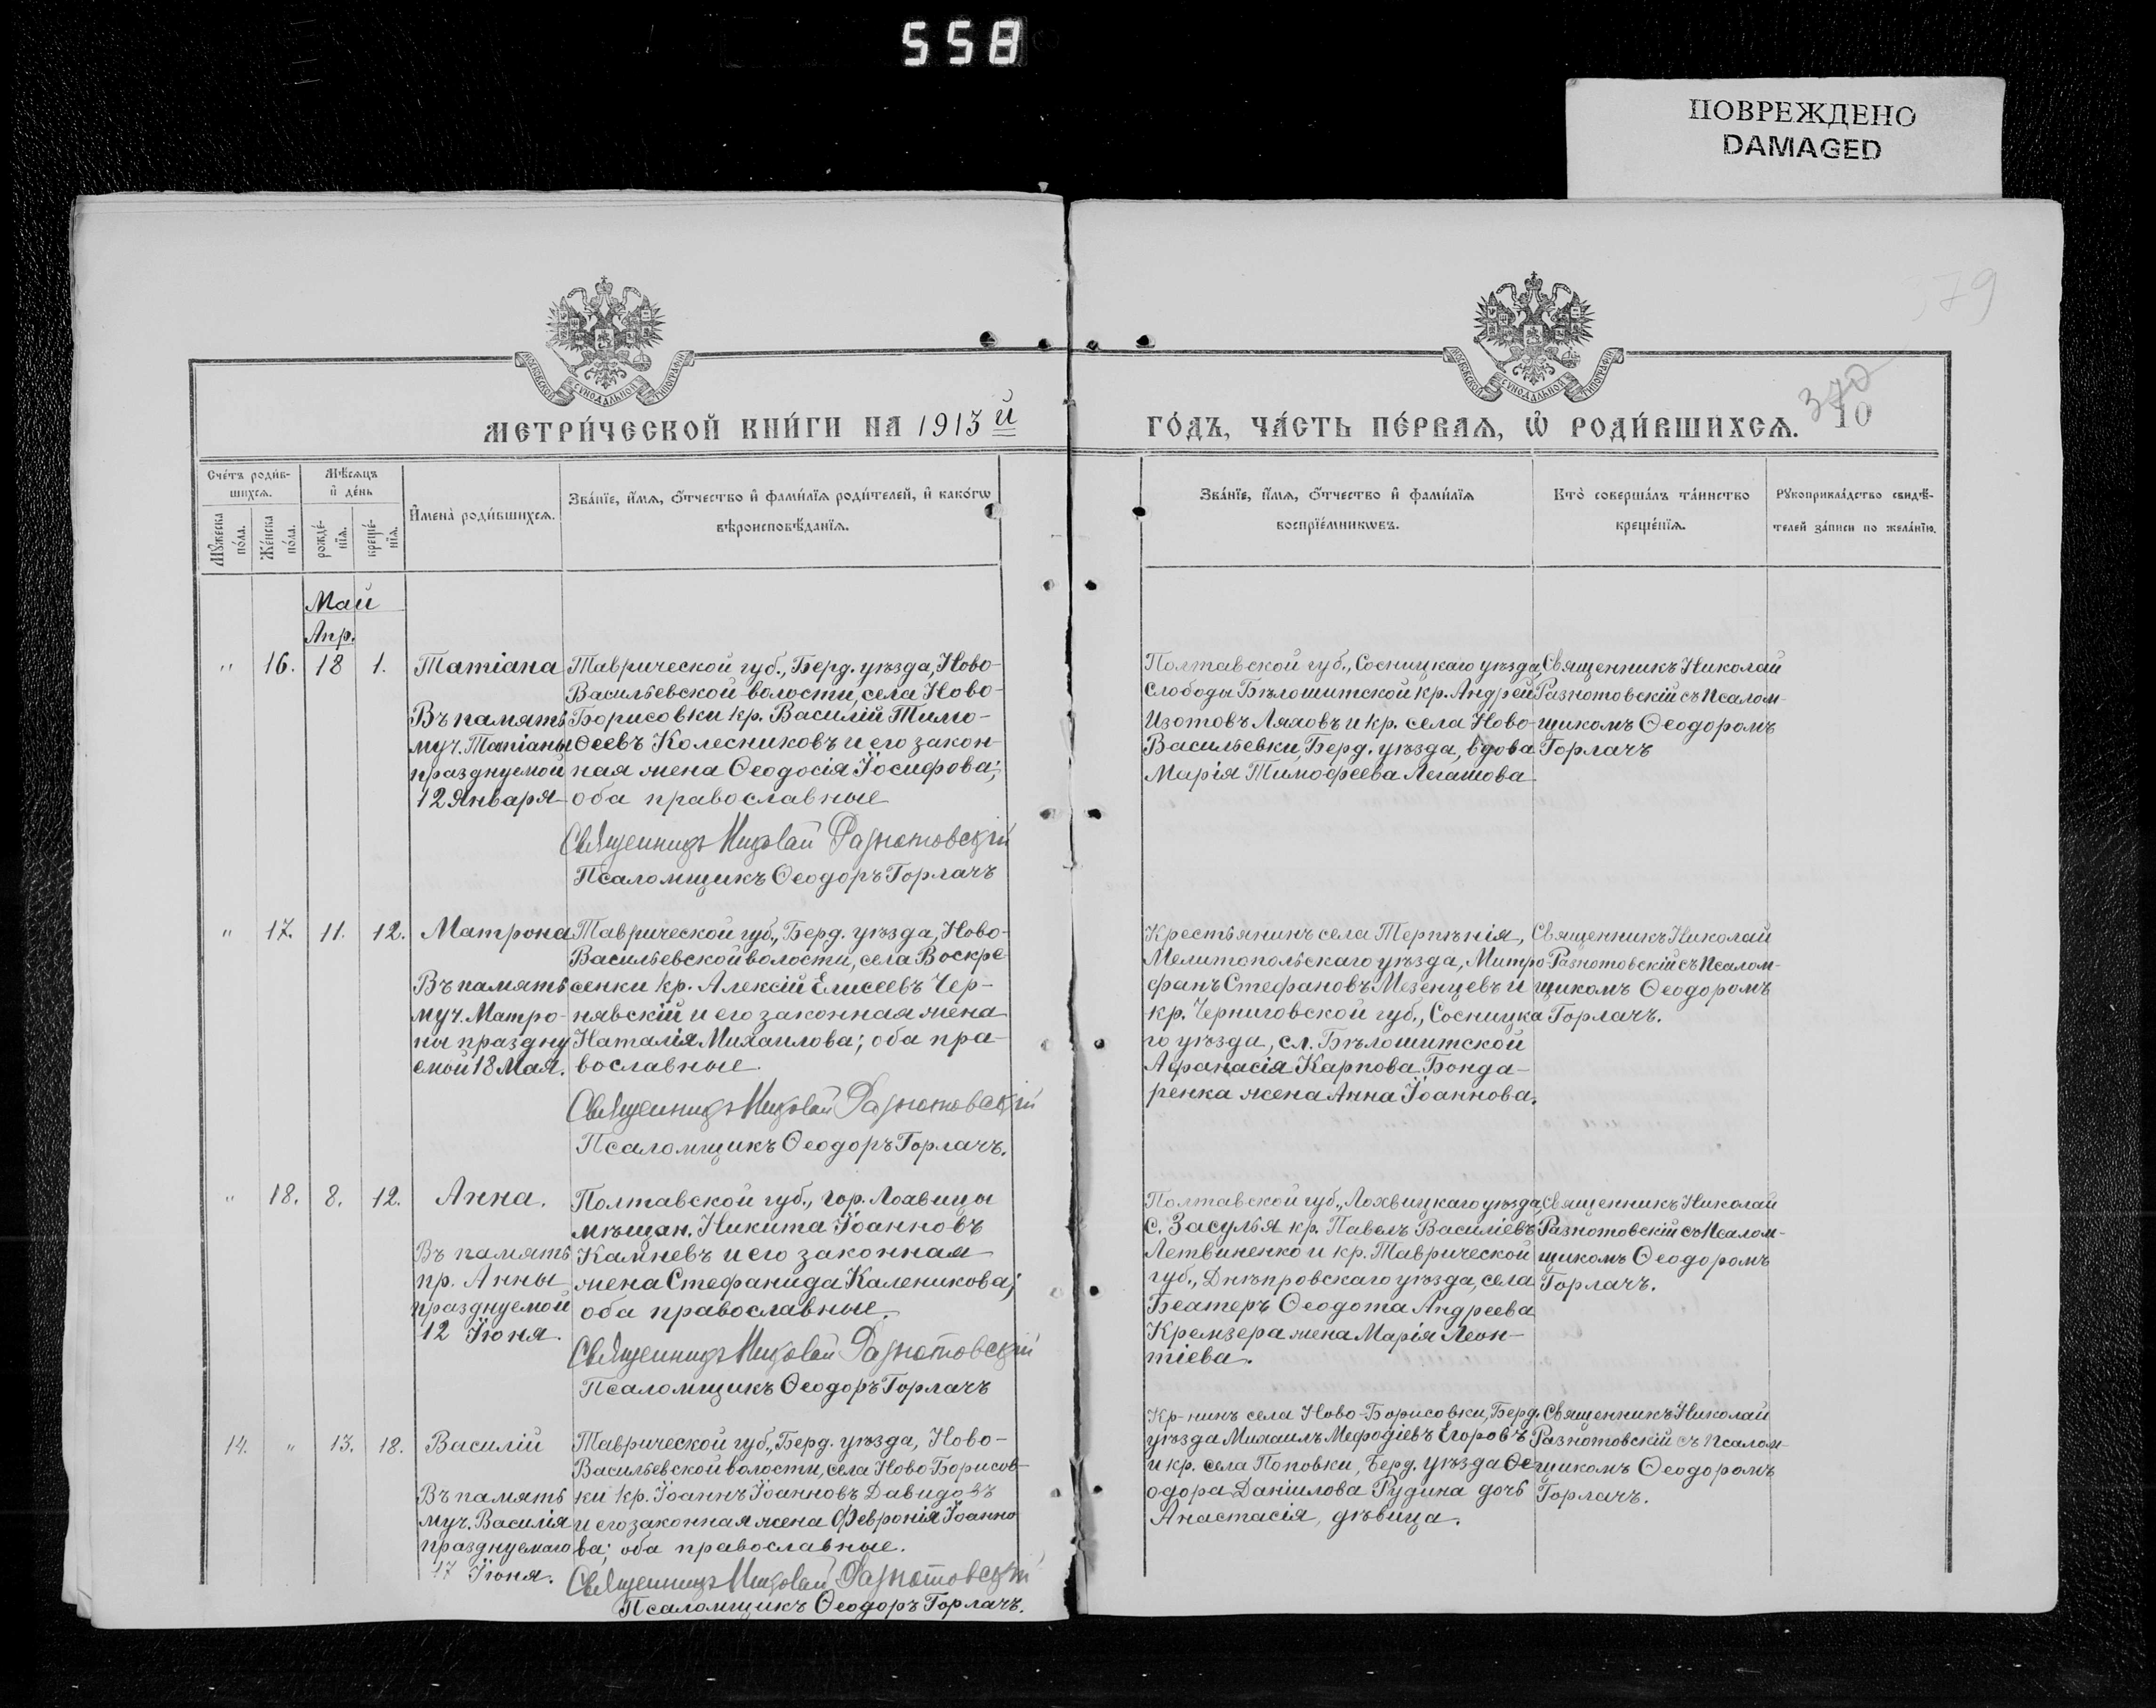 558
ПОВРЕЖДЕНО
DAMAGED
79
МОСКОВСКОЙ СѴНОДАЛЬНОЙ ТИПОГРАФІИ
МОСКОВСКОЙ СѴНОДАЛЬНОЙ ТИПОГРАФІИ
370
10
МЕТРИ́ЧЕСКОЙ КНИ́ГИ НА 1913й
ГО́ДЪ, ЧА́СТЬ ПЕ́РВАѦ, Ѡ҆ РОДИ́ВШИХСѦ.
Сче́тъ роди́в-
шихсѧ.
Мꙋ́жеска
по́ла.
Же́нска
по́ла.
Мѣ́сѧцъ
и҆ де́нь
рожде́-
нїѧ.
креще́-
нїѧ.
И҆мена̀ роди́вшихсѧ.
Зва́нїе, и҆́мѧ, ѻ҆́тчество и҆ фами́лїѧ роди́телей, и҆ како́гѡ
вѣроисповѣ́данїѧ.
Зва́нїе, и҆́мѧ, ѻ҆́тчество и҆ фами́лїѧ
воспрїе́мникѡвъ.
Кто̀ соверша́лъ та́инство
креще́нїѧ.
Рꙋкоприкла́дство свидѣ́-
телей за́писи по жела́нїю.
Май
Апр.
" 16. 18 1.
Татіана
Въ память
муч. Татіаны
празднуемой
12 Января
Таврической губ., Берд. уѣзда, Ново-
Васильевской волости, села Ново-
Борисовки кр. Василій Тимо-
ѳеевъ Колесниковъ и его закон-
ная жена Ѳеодосія Іосифова;
оба православные
Священникъ Николай Разнотовскій
Псаломщикъ Ѳеодоръ Горлачъ
Полтавской губ., Сосницкаго уѣзда,
слободы Бѣлошитской кр. Андрей
Изотовъ Ляховъ и кр. села Ново-
Васильевки, Берд. уѣзда, вдова
Марія Тимофеева Легашова
Священникъ Николай
Разнотовскій съ псалом-
щикомъ Ѳеодоромъ
Горлачъ
" 17. 11. 12.
Матрона
Въ память
муч. Матро-
ны праздну
емой 18 Мая.
Таврической губ., Берд. уѣзда, Ново-
Васильевской волости, села Воскре-
сенки кр. Алексій Елисеевъ Чер-
нявскій и его законная жена
Наталія Михаилова; оба пра-
вославные.
Священникъ Николай Разнотовскій
Псаломщикъ Ѳеодоръ Горлачъ.
Крестьянинъ села Терпѣнія,
Мелитопольскаго уѣзда, Митро-
фанъ Стефановъ Мезенцевъ и
кр. Черниговской губ., Сосницка
го уѣзда, сл. Бѣлошитской
Афанасія Карпова Бонда-
ренка жена Анна Іоаннова.
Священникъ Николай
Разнотовскій съ псалом-
щикомъ Ѳеодоромъ
Горлачъ.
" 18. 8. 12.
Анна.
Въ память
пр. Анны
празднуемой
12 Іюня.
Полтавской губ., гор. Лохвицы
мѣщан. Никита Іоанновъ
Камневъ и его законная
жена Стефанида Каленикова;
оба православные.
Священникъ Николай Разнотовскій
Псаломщикъ Ѳеодоръ Горлачъ
Полтавской губ., Лохвицкаго уѣзда,
с. Засулья кр. Павелъ Василіевъ
Летвиненко и кр. Таврической
губ., Днѣпровскаго уѣзда, села
Беатеръ Ѳеодота Андреева
Кремзера жена Марія Леон-
тіева.
Священникъ Николай
Разнотовскій съ псалом-
щикомъ Ѳеодоромъ
Горлачъ.
14. " 13. 18.
Василій
Въ память
муч. Василія
празднуемаго
17 Іюня.
Таврической губ., Берд. уѣзда, Ново-
Васильевской волости, села Ново Борисов-
ки кр. Іоаннъ Іоанновъ Давидовъ
и его законная жена Февронія Іоанно
ва; оба православные.
Священникъ Николай Разнотовскій
Псаломщикъ Ѳеодоръ Горлачъ.
Кр-нинъ села Ново-Борисовки, Берд.
уѣзда Михаилъ Мефодіевъ Егоровъ
и кр. села Поповки, Берд. уѣзда Ѳе-
одора Даніилова Рудина дочь
Анастасія, дѣвица.
Священникъ Николай
Разнотовскій съ псалом-
щикомъ Ѳеодоромъ
Горлачъ.